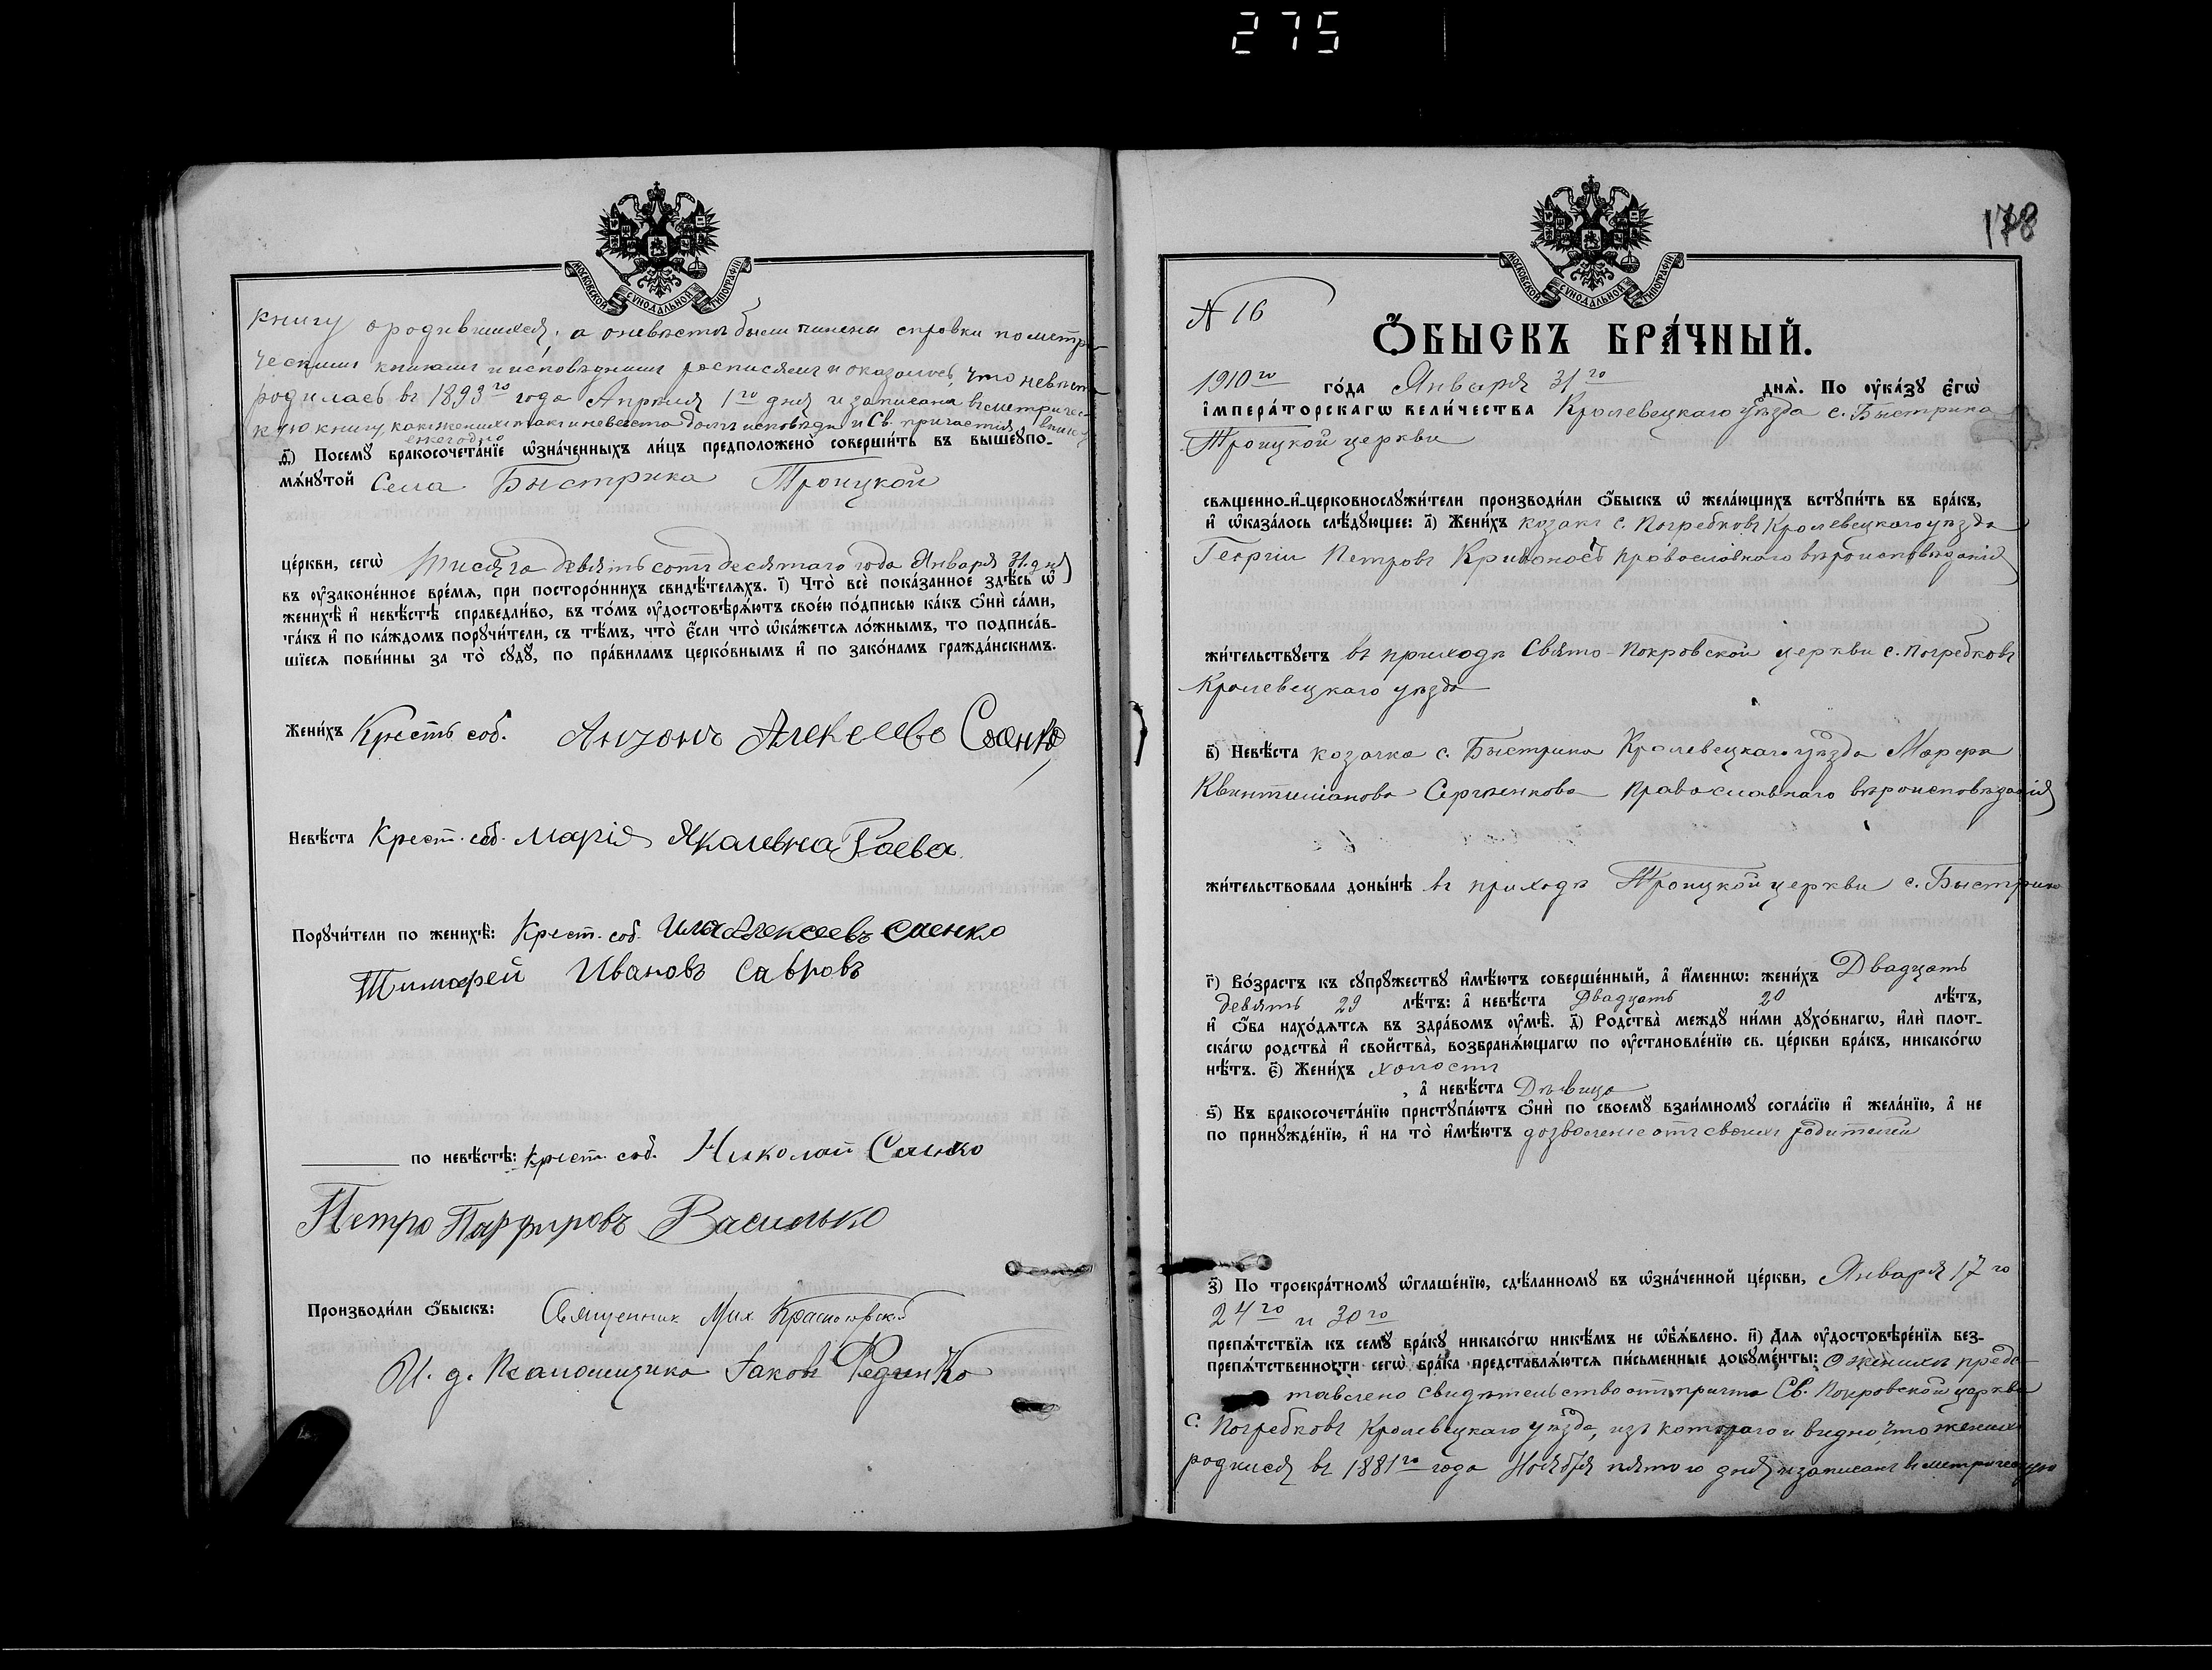 275
МОСКОВСКОЙ СѴНОДАЛЬНОЙ ТИПОГРАФІИ
книгу о родившихся; а о невѣсты были чинены справки по метри
ческимъ книгамъ и исповѣднымъ росписямъ и оказалось, что невѣста
родилась въ 1893го года Апрѣля 1го дня и записана въ метричес
кую книгу, какъ женихъ такъ и невеста долгъ исповѣди и Св. причастія
ежегодно
ѳ҃) Посемꙋ бракосочета́нїе ѡ҆зна́ченныхъ ли́цъ предположено̀ соверши́ть въ вышеꙋпо-
мѧ́нꙋтой Села Быстрика Троицкой
це́ркви, сегѡ̀ тысяча девятьсотъ десятаго года Января 31. дня
въ ᲂу҆законе́нное вре́мѧ, при посторо́ннихъ свидѣ́телѧхъ. і҃) Что̀ всѐ пока́занное здѣ́сь ѡ҆
женихѣ̀ и҆ невѣ́стѣ справедли́во, въ то́мъ ᲂу҆достовѣрѧ́ютъ свое́ю по́дписью ка́къ ѻ҆нѝ са́ми,
та́къ и҆ по ка́ждомъ порꙋчи́тели, съ тѣ́мъ, что̀ є҆́сли что̀ ѡ҆ка́жетсѧ ло́жнымъ, то подписа́в-
шїесѧ пови́нны за то̀ сꙋдꙋ̀, по пра́виламъ церко́внымъ и҆ по зако́намъ гражда́нскимъ.
Жени́хъ Кресть соб. Антонъ Алексеевъ Саенко
Невѣ́ста Крест. соб. Марія Яковлевна Гаева
Порꙋчи́тели по женихѣ̀: Крест. соб. Илья Алексеевъ Саенко
Тимофей Ивановъ Савровъ
по невѣ́стѣ: Крест. соб. Николай Саенко
Петро Парфировъ Василько
Производи́ли ѻ҆́быскъ: Священник Мих Красногорскій
И. д. Псаломщика Іаковъ Феденко
178
МОСКОВСКОЙ СѴНОДАЛЬНОЙ ТИПОГРАФІИ
N 16
Ѻ҆́БЫСКЪ БРА́ЧНЫЙ.
1910го го́да Января 31го днѧ̀. По ᲂу҆ка́зꙋ є҆гѡ̀
і҆мпера́торскагѡ вели́чества Кролевецкаго уѣзда с. Быстрика
Троицкой церкви
свѧщенно-и҆-церковнослꙋжи́тели производи́ли ѻ҆́быскъ ѡ҆ жела́ющихъ встꙋпи́ть въ бра́къ,
и҆ ѡ҆каза́лось слѣ́дꙋющее: а҃) Жени́хъ козакъ с. Погребковъ Кролевецкаго уѣзда
Георгій Петровъ Кривоносъ православнаго вѣроисповѣданія
жи́тельствꙋетъ въ приходѣ Свято-Покровской церкви с. Погребковъ
Кролевецкаго уѣзда
в҃) Невѣ́ста козачка с. Быстрика Кролевецкаго уѣзда Марфа
Квинтиліанова Сергѣенкова православнаго вѣроисповѣданія
жи́тельствовала доны́нѣ въ приходѣ Троицкой церкви с. Быстрика
г҃) Во́зрастъ къ сꙋпрꙋ́жествꙋ и҆мѣ́ютъ соверше́нный, а҆ и҆́меннѡ: жени́хъ Двадцать
девять 29 лѣ́тъ: а҆ невѣ́ста Двадцать 20 лѣ́тъ,
и҆ ѻ҆́ба нахо́дѧтсѧ въ здра́вомъ ᲂу҆мѣ̀. д҃) Родства̀ междꙋ ни́ми дꙋхо́внагѡ, и҆лѝ плот-
ска́гѡ родства̀ и҆ свойства̀, возбранѧ́ющагѡ по ᲂу҆становле́нїю св. це́ркви бра́къ, никако́гѡ
нѣ́тъ. є҃) Жени́хъ холостъ
, а҆ невѣ́ста Дѣвица
ѕ҃) Къ бракосочета́нїю пристꙋпа́ютъ ѻ҆нѝ по своемꙋ̀ взаи́мномꙋ согла́сїю и҆ жела́нїю, а҆ не
по принꙋжде́нїю, и҆ на то̀ и҆мѣ́ютъ дозволение отъ своихъ родителей
з҃) По троекра́тномꙋ ѡ҆глаше́нїю, сдѣ́ланномꙋ въ ѡ҆зна́ченной це́ркви, Января 17го
24го и 30го
препѧ́тствїѧ къ семꙋ̀ бра́кꙋ никако́гѡ никѣ́мъ не ѡ҆б̾ѧ́влено. и҃) Длѧ ᲂу҆достовѣре́нїѧ без-
препѧ́тственности сегѡ̀ бра́ка представлѧ́ютсѧ пи́сьменные докꙋме́нты: О женихѣ предс
тавлено свидѣтельство отъ причта Св. Покровской церкви
с. Погребковъ Кролевецкаго уѣзда, изъ котораго и видно, что женихъ
родился въ 1881го года Ноября пятого дня и записанъ въ метрическую